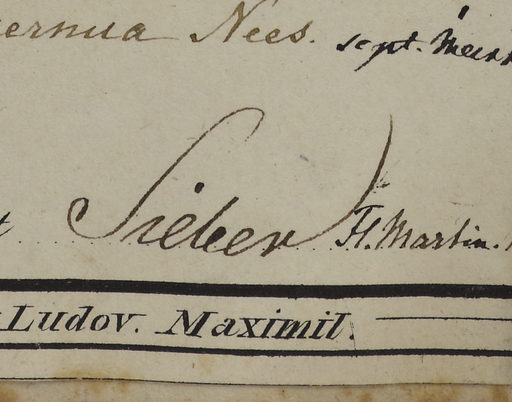 ernua Nees. sept. Mein
Sieber Fl. Martin.
Ludov. Maximil.